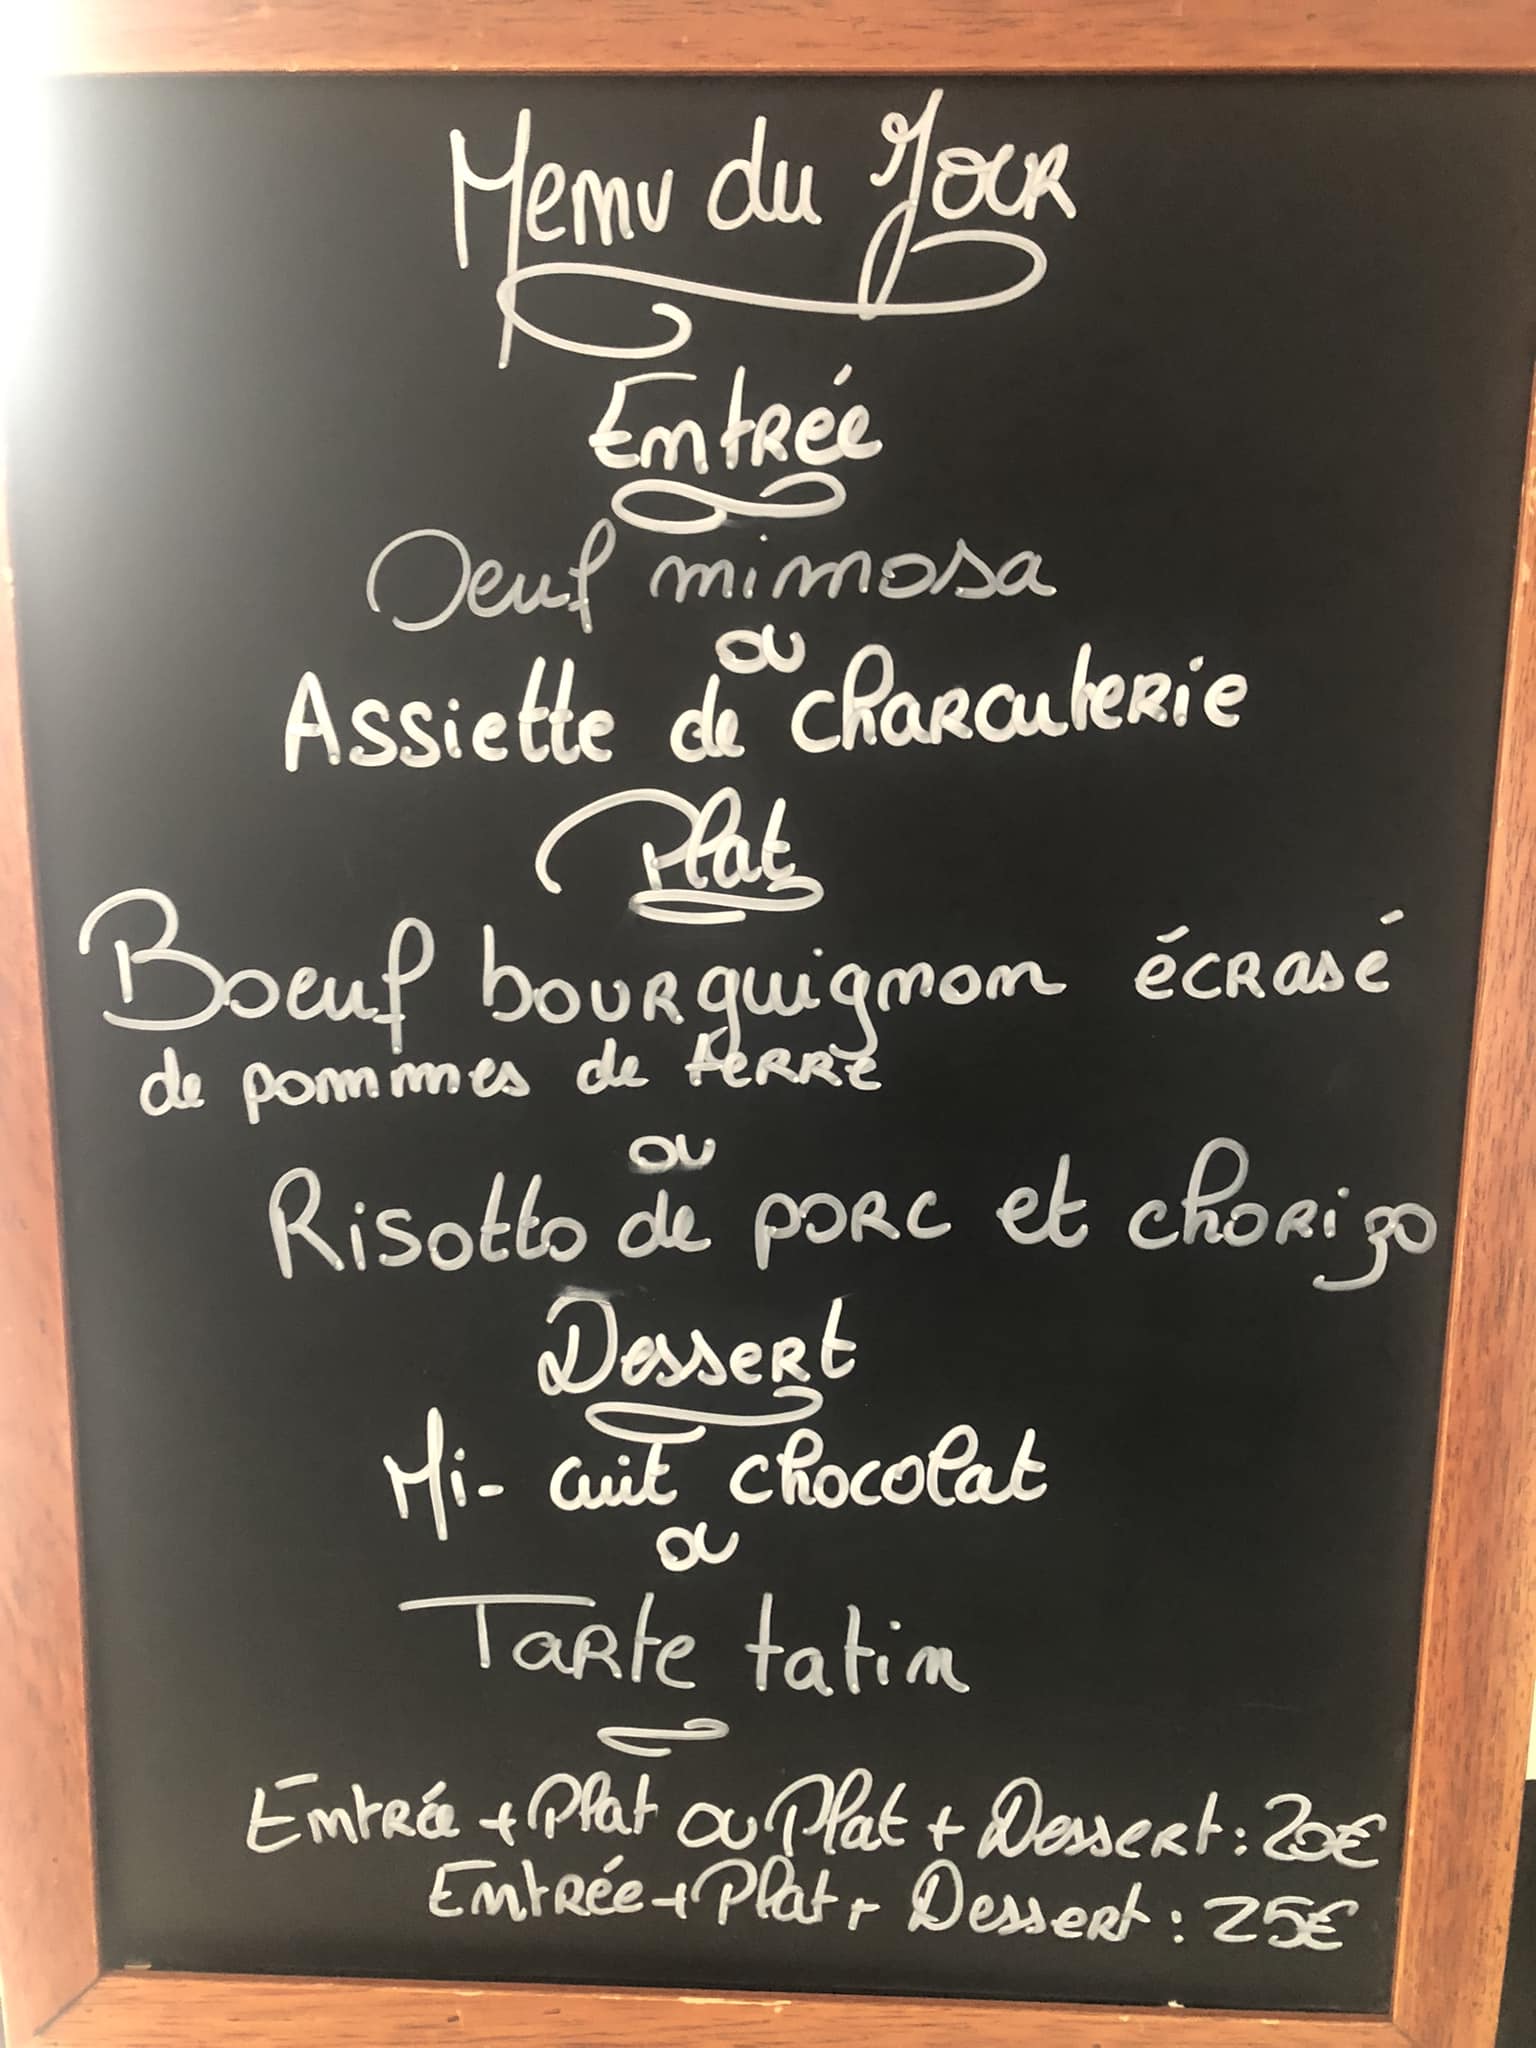 Menu du Jour
Entrée
Oeuf mimosa
ou
Assiette de charcuterie
Plat
Boeuf bourguignon écrasé
de pommes de terre
ou
Risotto de porc et chorizo
Dessert
Mi-cuit chocolat
ou
Tarte tatin
Entrée + Plat ou Plat + Dessert : 20€
Entrée + Plat + Dessert : 25€